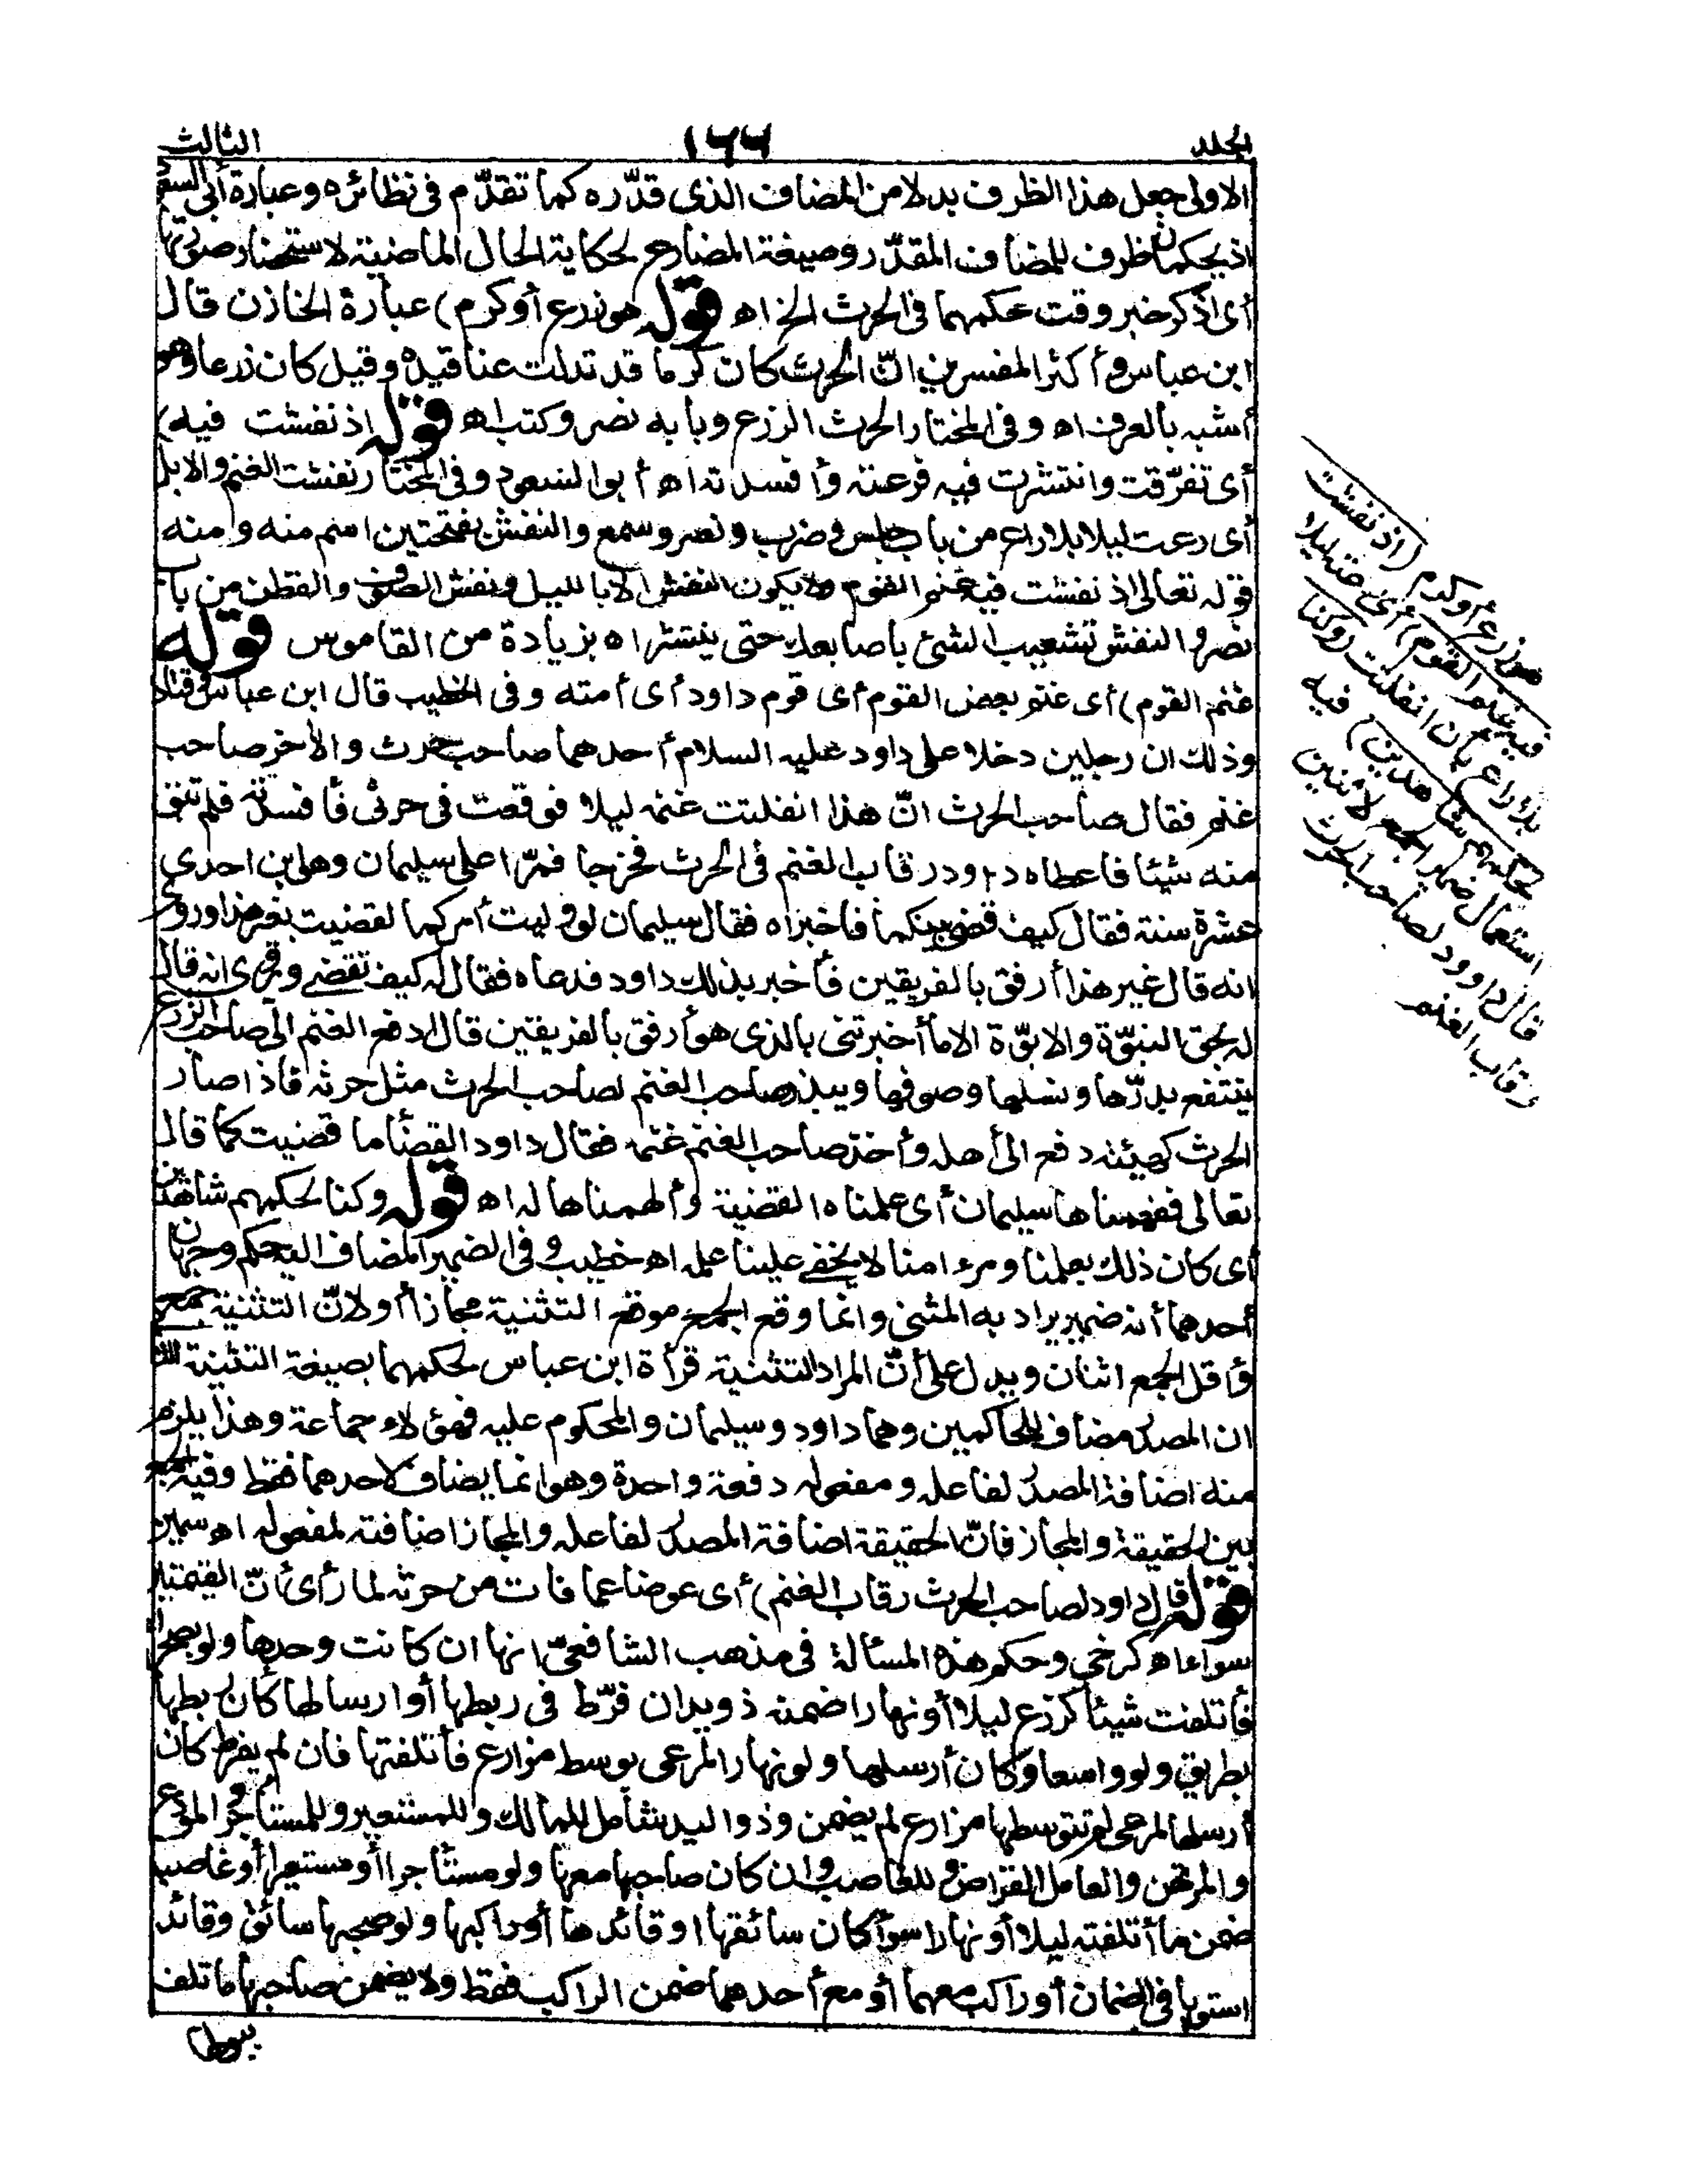 الجلد ١٦٦ الثالث
الاولى جعل هذا الظرف بدلا من المضاف الذى قدّره كما تقدّم فى نظائره وعبارة أبى السعود
اذ يحكمان ظرف للمضاف المقدّر وصيغة المضارع لحكاية الحال الماضية لاستحضار صورتها
أى اذكر خبر وقت حكمهما فى الحرث الخ اه قوله هو زرع أو كرم) عبارة الخازن قال
ابن عباس وأكثر المفسرين انّ الحرث كان كرما قد تدلت عناقيده وقيل كان زرعا وهو
أشبه بالعرف اه وفى المختار الحرث الزرع وبابه نصر وكتب اه قوله اذ نفشت فيه)
أى تفرّقت وانتشرت فيه فرعته وأفسدته اه أبو السعود وفى المختار نفشت الغنم والابل
أى رعت ليلا بلا راع من باب جلس وضرب ونصر وسمع والنفش بفتحتين اسم منه ومنه
قوله تعالى اذ نفشت فيه غنم القوم ولا يكون النفش الا بالليل ونفش الصوف والقطن من باب
نصر والنفش تشعيب الشئ باصابعك حتى ينتشر اه بزيادة من القاموس قوله
غنم القوم) أى غنم بعض القوم أى قوم داود أى أمته وفى الخطيب قال ابن عباس وقتادة
وذلك ان رجلين دخلا على داود عليه السلام أحدهما صاحب حرث والآخر صاحب
غنم فقال صاحب الحرث انّ هذا انفلتت غنمه ليلا فوقعت فى حرثى فأفسدته فلم تبق
منه شيئا فاعطاه داود رقاب الغنم فى الحرث فخرجا فمرّا على سليمان وهو ابن احدى
عشرة سنة فقال كيف قضى بينكما فأخبراه فقال سليمان لو وليت أمركما لقضيت بغير هذا وروى
انه قال غير هذا أرفق بالفريقين فأخبر بذلك داود فدعاه فقال له كيف تقضى وروى انه قال
له بحق النبوّة والابوّة الا ما أخبرتنى بالذى هو أرفق بالفريقين قال ادفع الغنم الى صاحب الزرع
ينتفع بدرّها ونسلها وصوفها ويبذر صاحب الغنم لصاحب الحرث مثل حرثه فاذا صار
الحرث كهيئته دفع الى أهله وأخذ صاحب الغنم غنمه فقال داود القضأ ما قضيت كما قال
تعالى ففهمناها سليمان أى علمناه القضية وألهمناها له اه قوله وكنا لحكمهم شاهدين
أى كان ذلك بعلمنا ومرءا منا لا يخفى علينا علمه اه خطيب وفى الضمير المضاف اليه حكم وجهان
أحدهما أنه ضمير يراد به المثنى وانما وقع الجمع موقع التثنية مجازا أو لانّ التثنية جمع
وأقل الجمع اثنان ويدل على أنّ المراد التثنية قرأة ابن عباس لحكمهما بصيغة التثنية الثانى
ان المصدر مضاف للحاكمين وهما داود وسليمان والمحكوم عليه فهؤلاء جماعة وهذا يلزم
منه اضافة المصدر لفاعله ومفعوله دفعة واحدة وهو انما يضاف لاحدهما فقط وفيه الجمع
بين الحقيقة والمجاز فانّ الحقيقة اضافة المصدر لفاعله والمجاز اضافته لمفعوله اه سمين
قوله قال داود لصاحب الحرث رقاب الغنم) أى عوضا عما فات من حرثه لما رأى أنّ القيمتين
سواء اه كرخى وحكم هذه المسألة فى مذهب الشافعىّ انها ان كانت وحدها ولو بصحراء
فأتلفت شيئا كزرع ليلا أو نهارا ضمنه ذو يد ان فرّط فى ربطها أو ارسالها كأن ربطها
بطريق ولو واسعا وكان أرسلها ولو نهارا لمرعى بوسط مزارع فأتلفتها فان لم يفرط كأن
أرسلها لمرعى لم تتوسطها مزارع لم يضمن وذو اليد شامل للمالك وللمستعير وللمستأجر والمودع
والمرتهن والعامل القراض وللغاصب وان كان صاحبها معها ولو مستأجرا أو مستعيرا أو غاصبا
ضمن ما أتلفته ليلا أو نهارا سوأ كان سائقها أو قائدها أو راكبها ولو صحبها سائق وقائد
استويا فى الضمان أو راكب معهما أو مع أحدهما ضمن الراكب فقط ولا يضمن صاحبها ما تلف
هو زرع أو كرم (اذ نفشت
فيه غنم القوم) أى رعته ليلا
بلا راع بأن انفلتت (وكنا
لحكمهم شاهدين) فيه
استعمال ضمير الجمع لاثنين
قال داوود لصاحب الحرث
رقاب الغنم